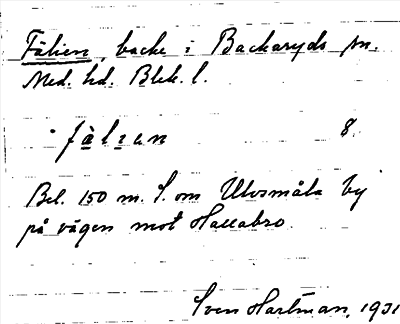 Fälien, backe i Backaryds sn.
Med. hd. Blek. l.
fàlıen 8.
Bel. 150 m. S. om Ulvsmåla by
på vägen mot Hallabro.
Sven Hartman, 1931